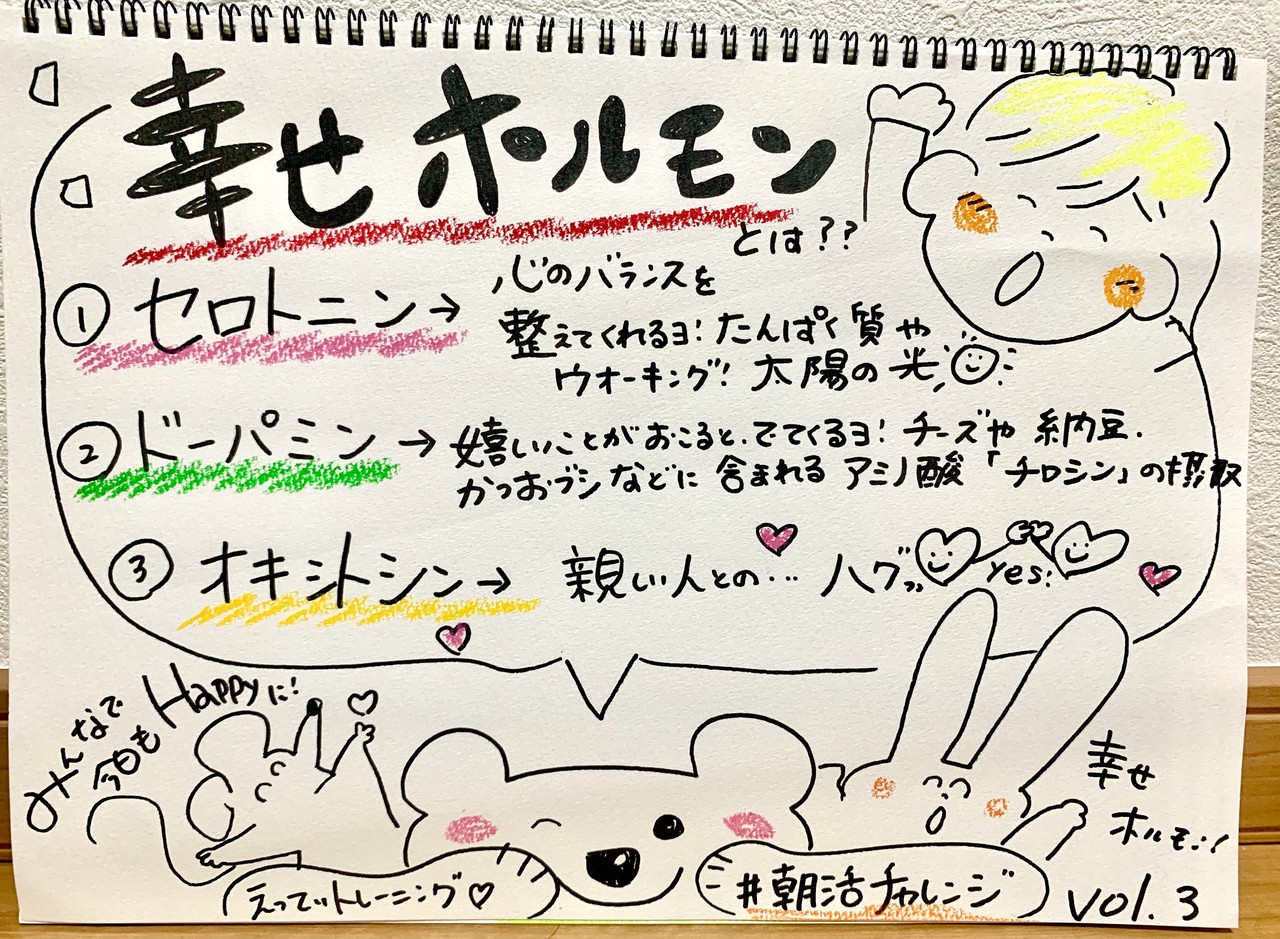 幸せホルモン
とは??
① セロトニン→ 心のバランスを
整えてくれるヨ!たんぱく質や
ウオーキング!太陽の光
② ドーパミン→ 嬉しいことがおこると、でてくるヨ!チーズや納豆、
かつおブシなどに含まれるアミノ酸「チロシン」の摂取
③ オキシトシン→ 親しい人との… ハグッ
yes!
みんなで
今日も Happyに!
幸せ
ホルモン!
えってぃトレーニング♡
#朝活チャレンジ
vol.3